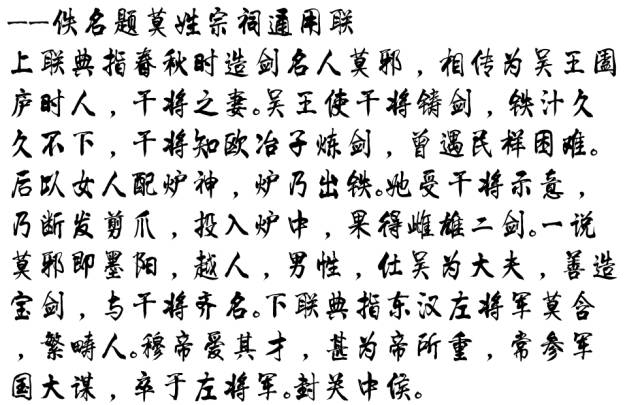 ——佚名题莫姓宗祠通用联
上联典指春秋时造剑名人莫邪，相传为吴王阖
庐时人，干将之妻。吴王使干将铸剑，铁汁久
久不下，干将知欧冶子炼剑，曾遇民样困难。
后以女人配炉神，炉乃出铁。她受干将示意，
乃断发剪爪，投入炉中，果得雌雄二剑。一说
莫邪即墨阳，越人，男性，仕吴为大夫，善造
宝剑，与干将齐名。下联典指东汉左将军莫含
，繁畤人。穆帝爱其才，甚为帝所重，常参军
国大谋，卒于左将军。封关中侯。